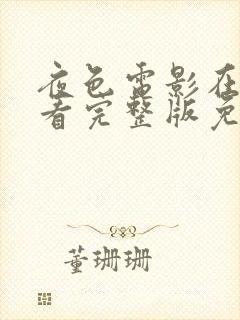 夜色雷影在
看完整版免
董珊珊